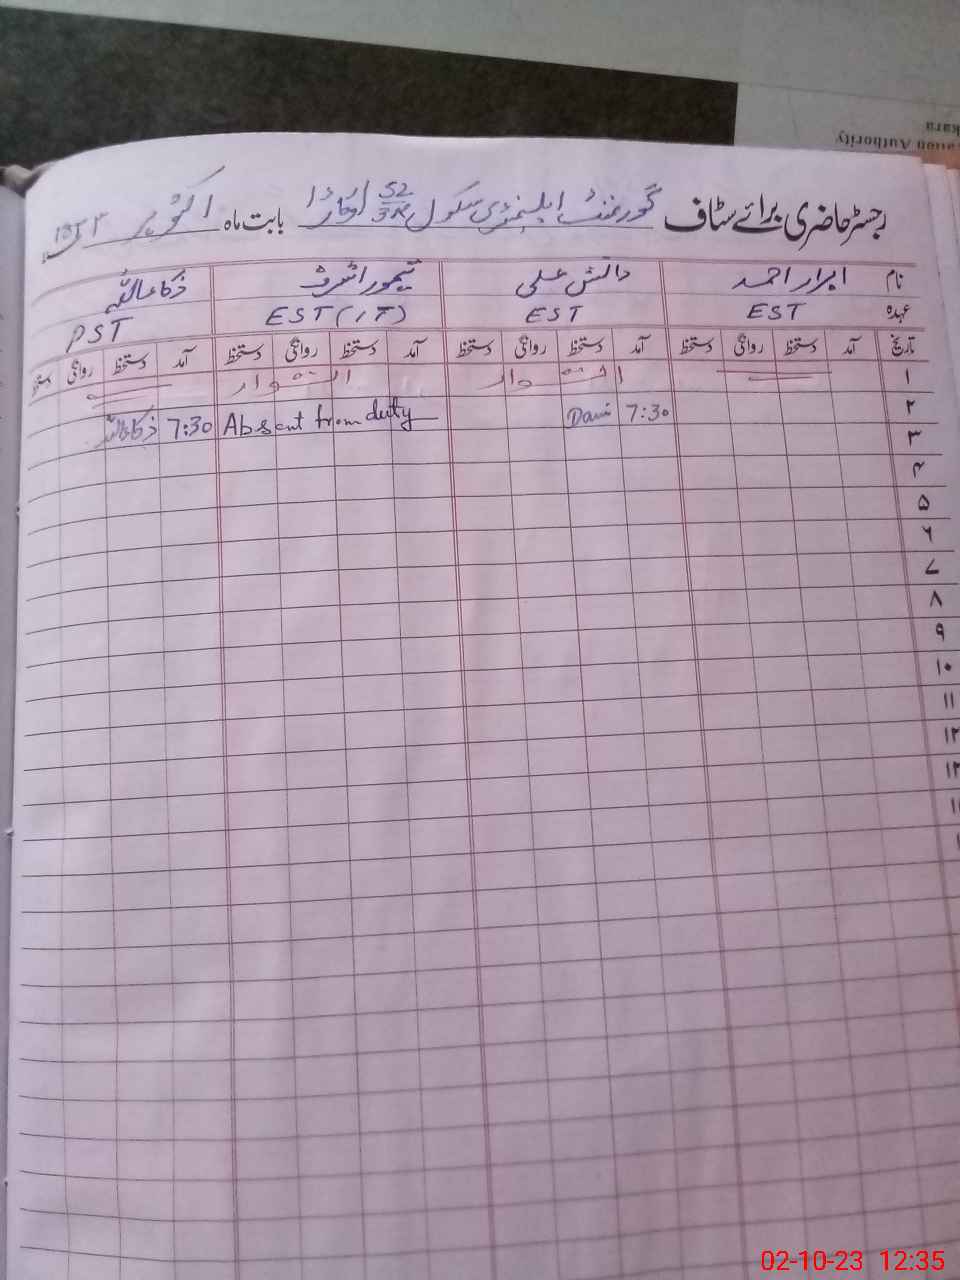 ation Authority
kara
رجسٹر حاضری برائے سٹاف گورنمنٹ ایلیمنٹری سکول 52/3R اوکاڑا بابت ماہ اکتوبر
نام ابرار احمد دانش علی تیمور اشرف ذکاءاللہ
عہدہ EST EST EST (IT) PST
تاریخ آمد دستخط روانگی دستخط آمد دستخط روانگی دستخط آمد دستخط روانگی دستخط آمد دستخط روانگی دستخط
۱ اتوار اتوار
۲ 7:30 Dani Absent from duty 7:30 ذکاءاللہ
۳
۴
۵
۶
۷
۸
۹
۱۰
۱۱
۱۲
۱۳
02-10-23 12:35